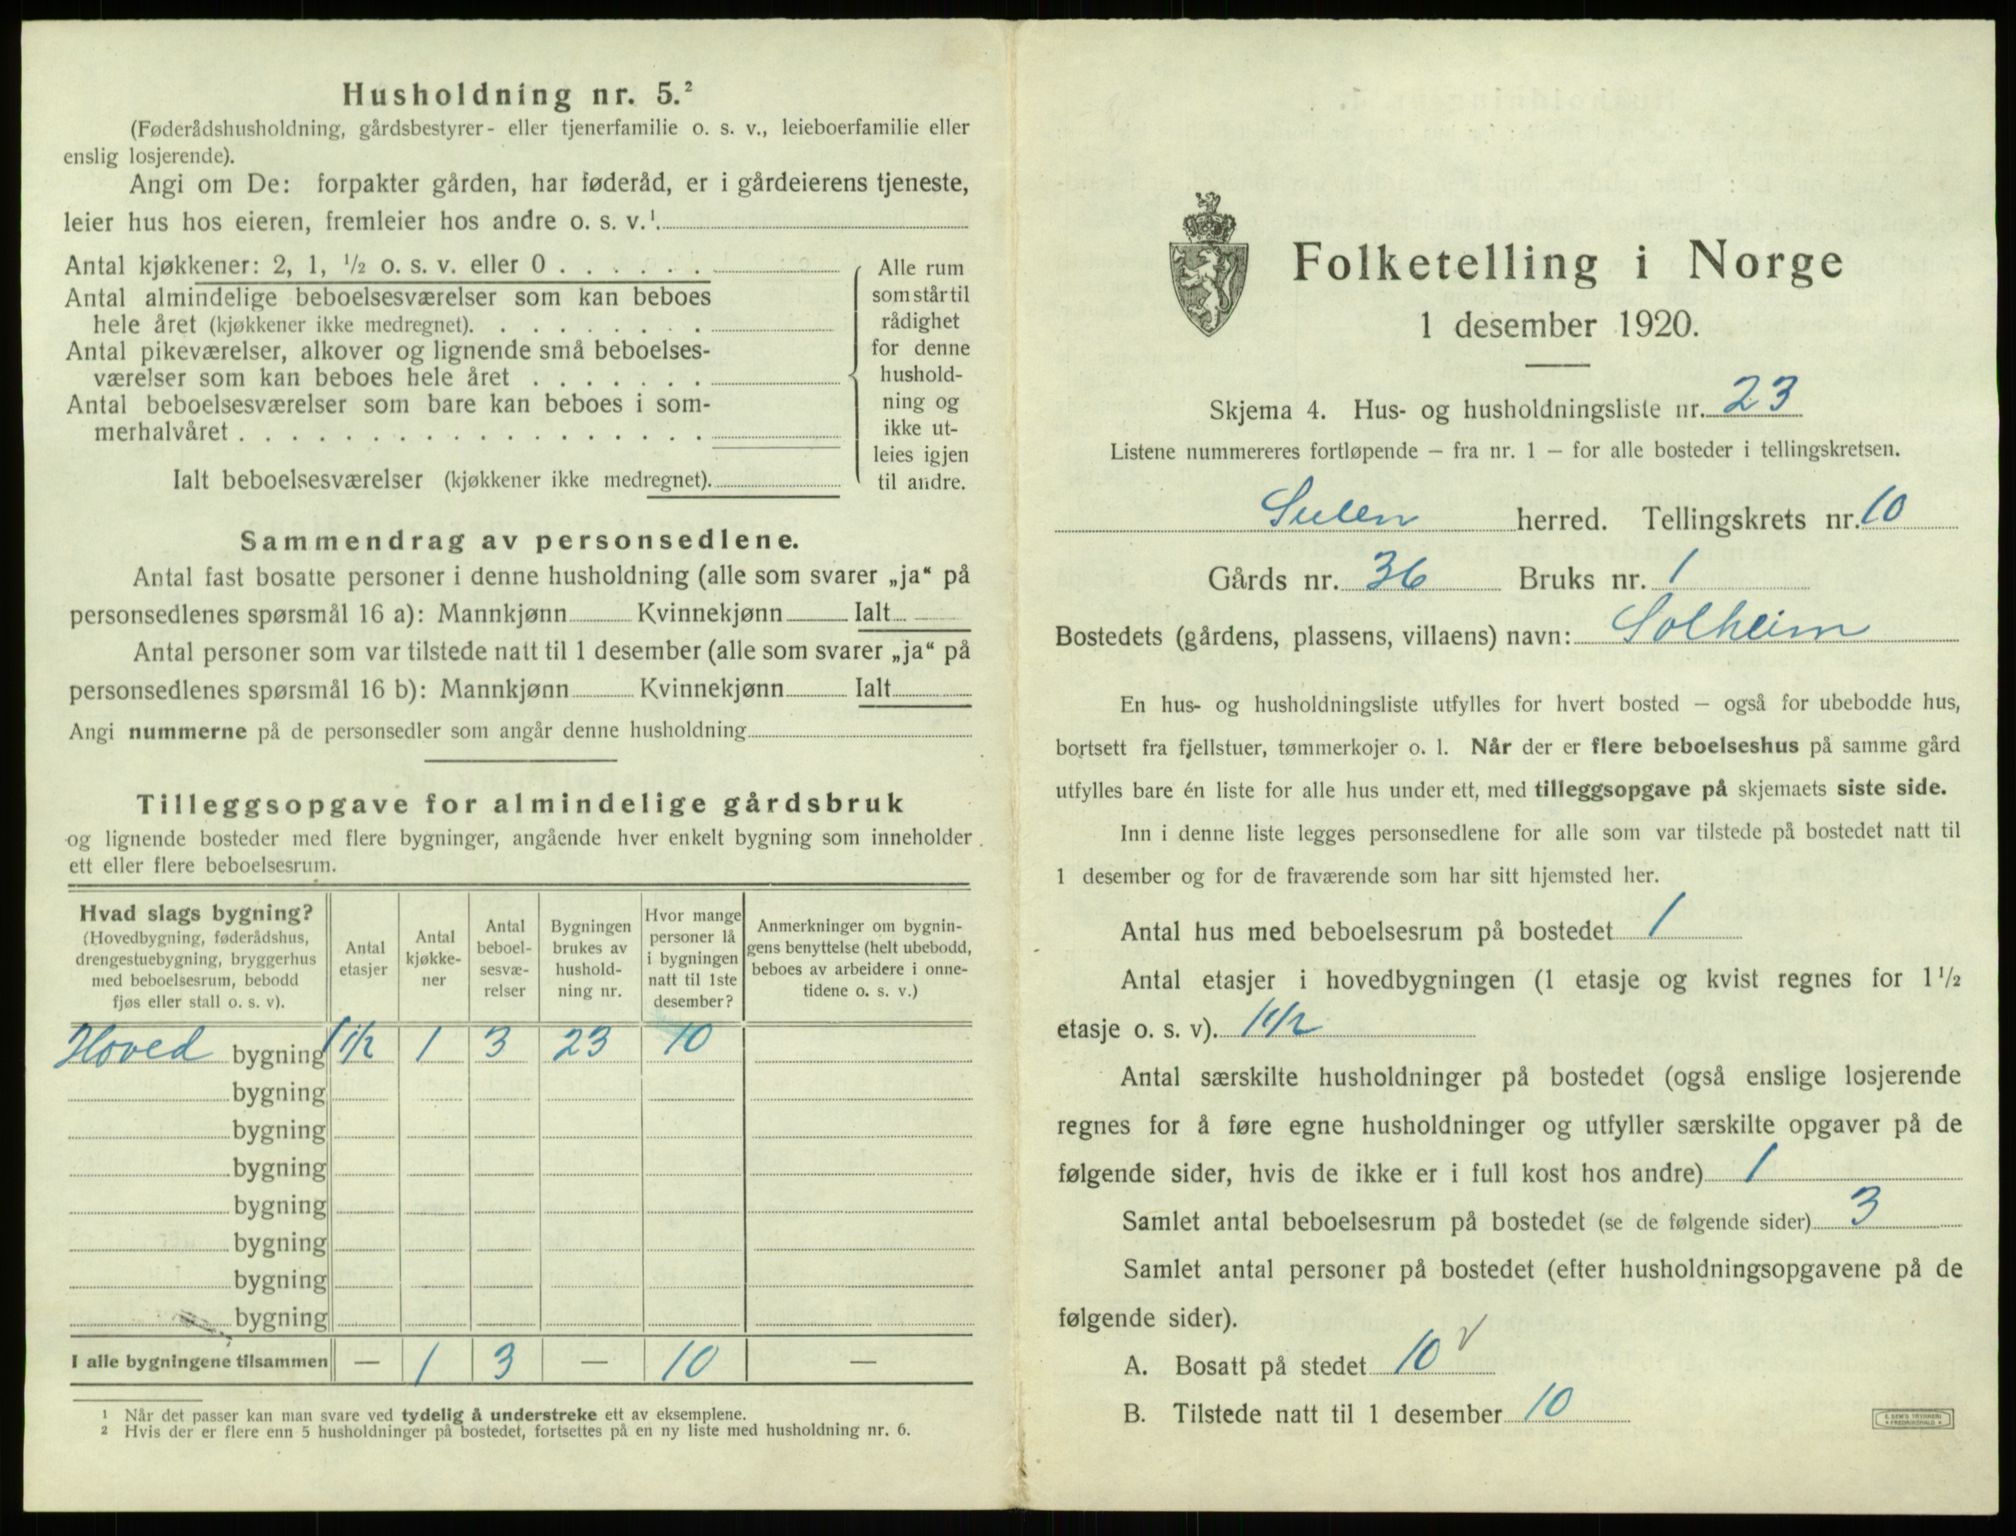 Husholdning nr. 5.²
(Føderådshusholdning, gårdsbestyrer- eller tjenerfamilie o. s. v., leieboerfamilie eller
enslig losjerende).
Angi om De: forpakter gården, har føderåd, er i gårdeierens tjeneste,
leier hus hos eieren, fremleier hos andre o. s. v.¹.
Antal kjøkkener: 2, 1, ½ o. s. v. eller 0 . . . . . .
Antal almindelige beboelsesværelser som kan beboes
hele året (kjøkkener ikke medregnet). . . . . . . . .
Antal pikeværelser, alkover og lignende små beboelses-
værelser som kan beboes hele året . . . . . . .
Antal beboelsesværelser som bare kan beboes i som-
merhalvåret . . . . . . . . . . . . . . . . . .
Ialt beboelsesværelser (kjøkkener ikke medregnet).
Alle rum
som står til
rådighet
for denne
hushold-
ning og
ikke ut-
leies igjen
til andre.
Sammendrag av personsedlene.
Antal fast bosatte personer i denne husholdning (alle som svarer „ja“ på
personsedlenes spørsmål 16 a): Mannkjønn Kvinnekjønn Ialt
Antal personer som var tilstede natt til 1 desember (alle som svarer „ja“ på
personsedlenes spørsmål 16 b): Mannkjønn Kvinnekjønn Ialt
Angi nummerne på de personsedler som angår denne husholdning
Tilleggsopgave for almindelige gårdsbruk
og lignende bosteder med flere bygninger, angående hver enkelt bygning som inneholder
ett eller flere beboelsesrum.
Hvad slags bygning?
(Hovedbygning, føderådshus,
drengestuebygning, bryggerhus
med beboelsesrum, bebodd
fjøs eller stall o. s. v).
Antal
etasjer
Antal
kjøkke-
ner
Antal
beboel-
sesvæ-
relser
Bygningen
brukes av
hushold-
ning nr.
Hvor mange
personer lå
i bygningen
natt til 1ste
desember?
Anmerkninger om bygnin-
gens benyttelse (helt ubebodd,
beboes av arbeidere i onne-
tidene o. s. v.)
Hoved bygning 1 1/2 1 3 23 10
bygning
bygning
bygning
bygning
bygning
bygning
bygning
I alle bygningene tilsammen — 1 3 — 10 —
¹ Når det passer kan man svare ved tydelig å understreke ett av eksemplene.
² Hvis der er flere enn 5 husholdninger på bostedet, fortsettes på en ny liste med husholdning nr. 6.
Folketelling i Norge
1 desember 1920.
Skjema 4. Hus- og husholdningsliste nr. 23
Listene nummereres fortløpende – fra nr. 1 – for alle bosteder i tellingskretsen.
Sulen herred. Tellingskrets nr. 10
Gårds nr. 36 Bruks nr. 1
Bostedets (gårdens, plassens, villaens) navn: Solheim
En hus- og husholdningsliste utfylles for hvert bosted – også for ubebodde hus,
bortsett fra fjellstuer, tømmerkojer o. l. Når der er flere beboelseshus på samme gård
utfylles bare én liste for alle hus under ett, med tilleggsopgave på skjemaets siste side.
Inn i denne liste legges personsedlene for alle som var tilstede på bostedet natt til
1 desember og for de fraværende som har sitt hjemsted her.
Antal hus med beboelsesrum på bostedet 1
Antal etasjer i hovedbygningen (1 etasje og kvist regnes for 1½
etasje o. s. v). 1 1/2
Antal særskilte husholdninger på bostedet (også enslige losjerende
regnes for å føre egne husholdninger og utfyller særskilte opgaver på de
følgende sider, hvis de ikke er i full kost hos andre) 1
Samlet antal beboelsesrum på bostedet (se de følgende sider) 3
Samlet antal personer på bostedet (efter husholdningsopgavene på de
følgende sider).
A. Bosatt på stedet 10 v
B. Tilstede natt til 1 desember 10
E. SEM'S TRYKKERI
FREDRIKSHALD